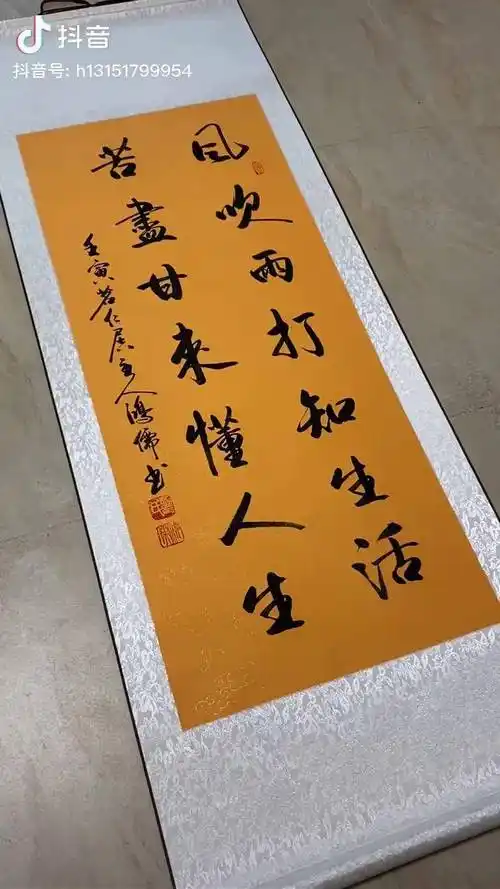 抖音
抖音号: h13151799954
風吹雨打知生活
苦盡甘來懂人生
壬寅茗仁居主人鴻儒書